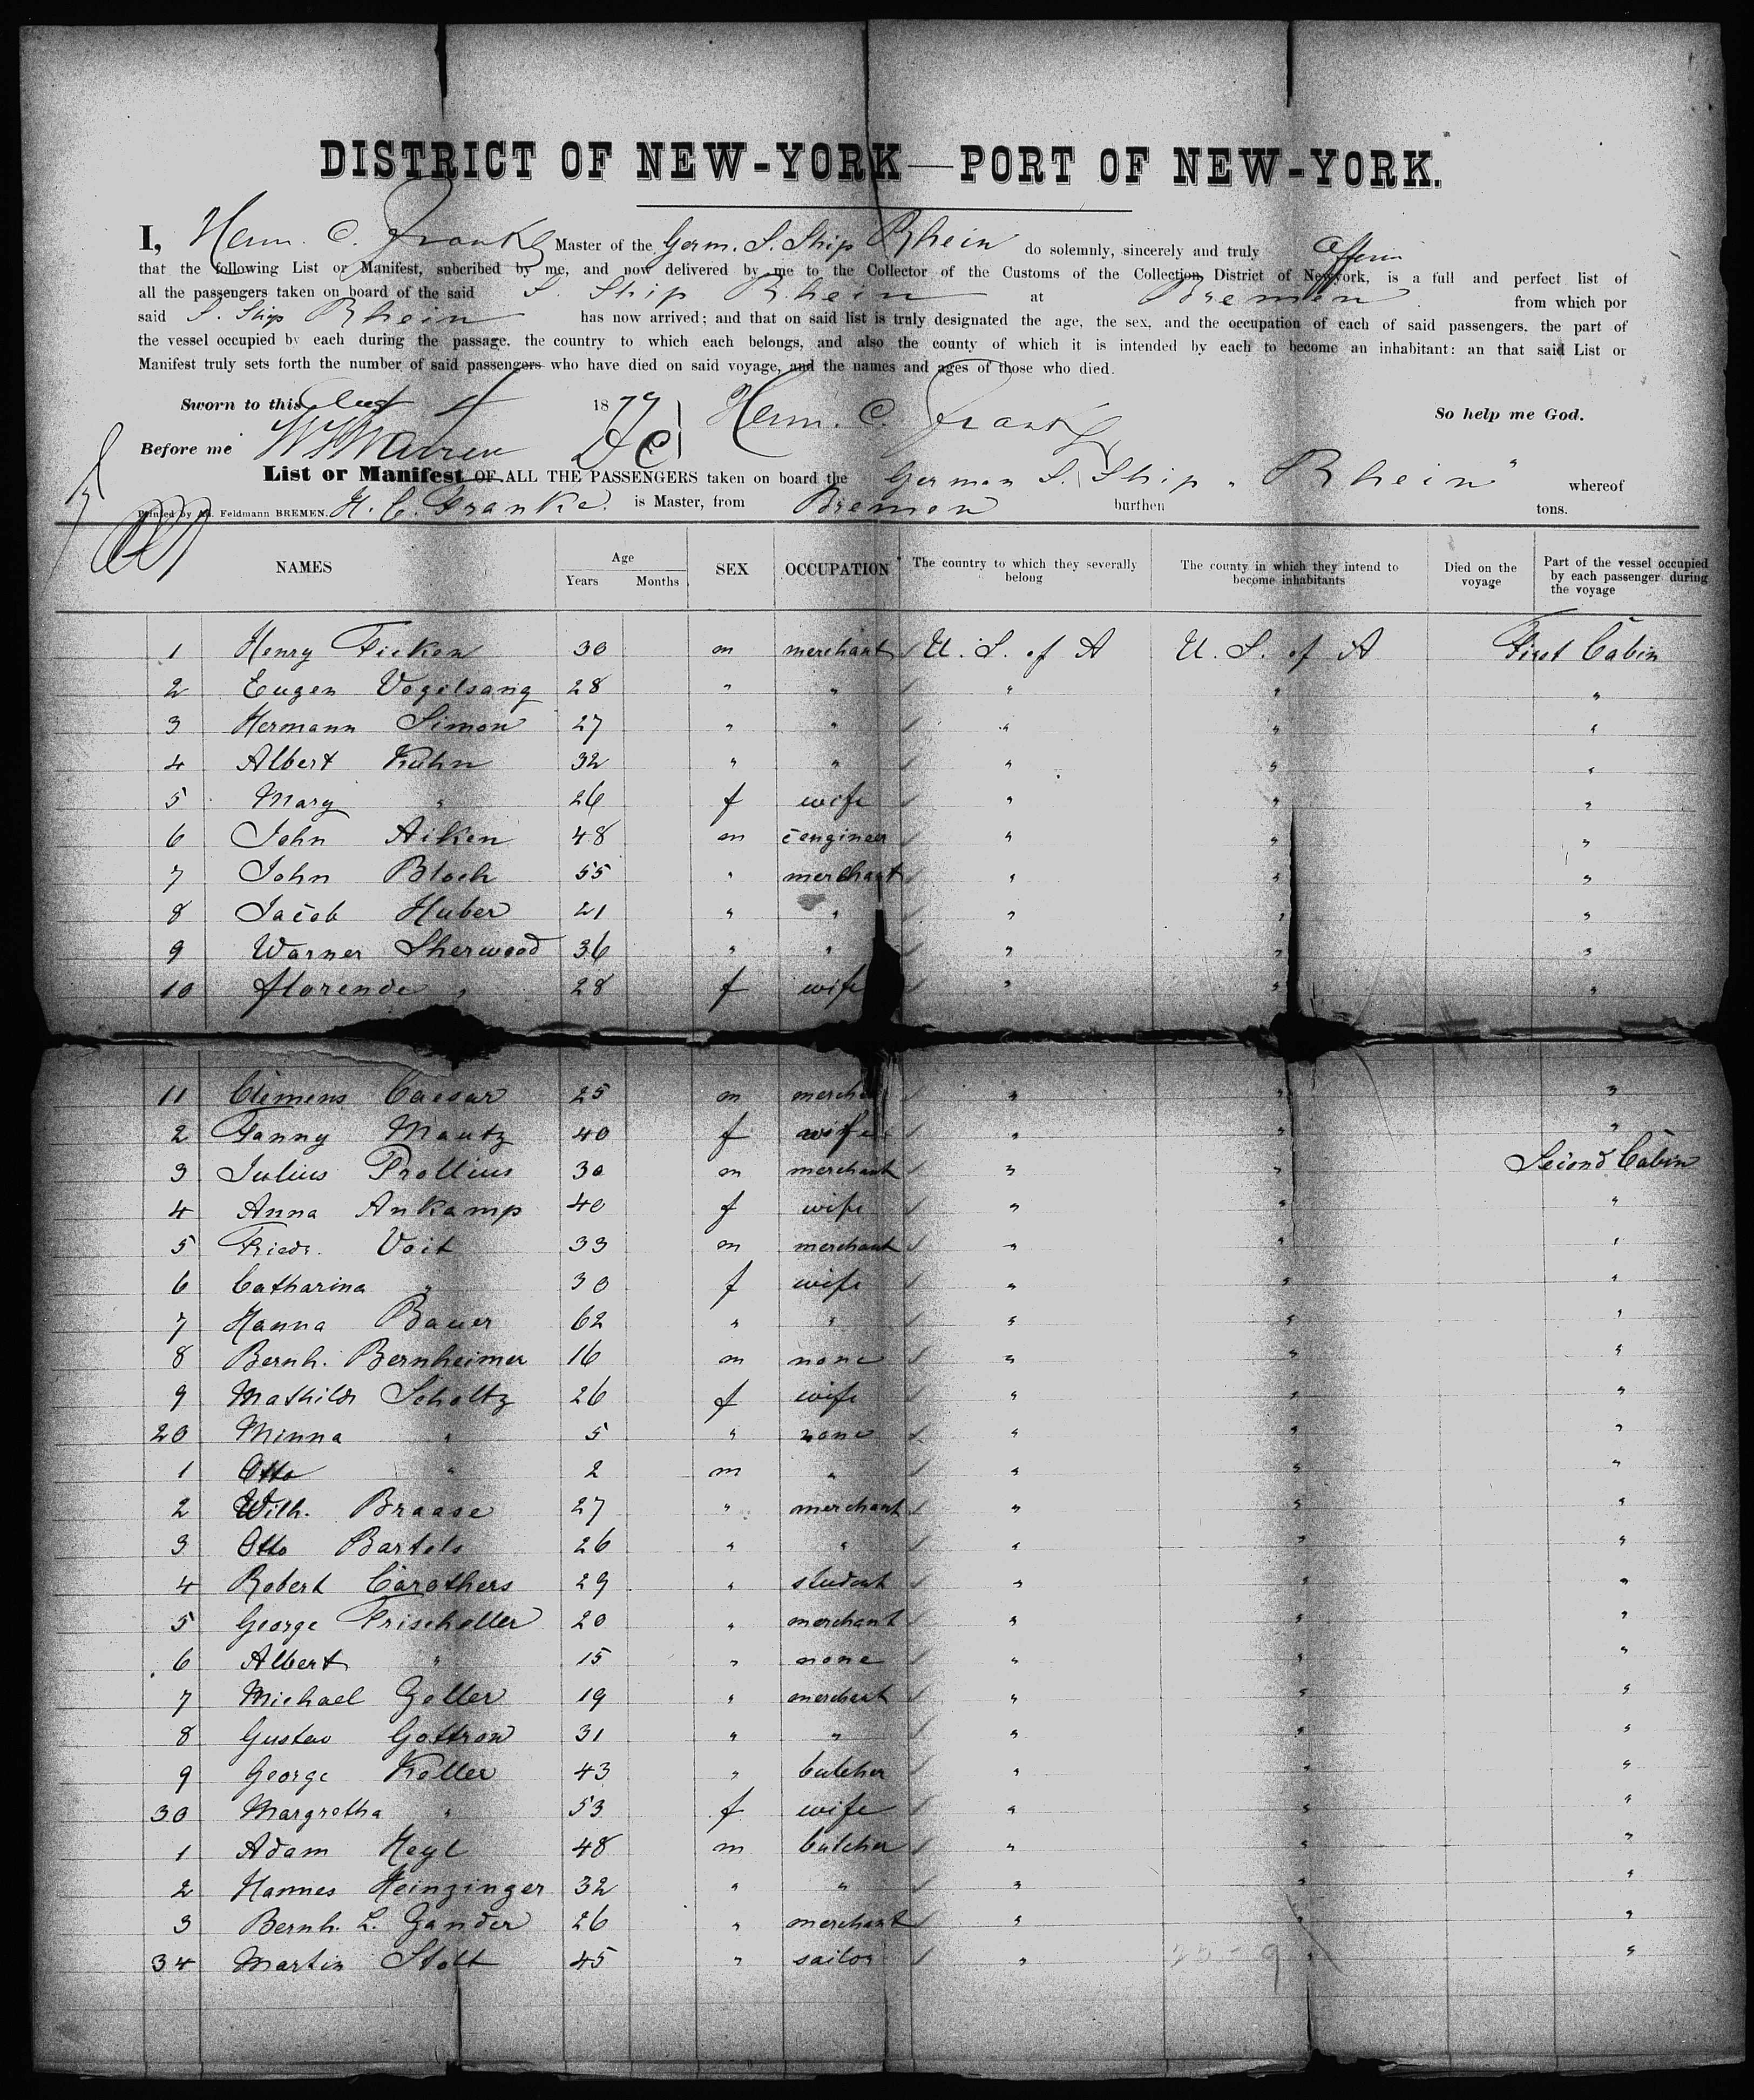 DISTRICT OF NEW-YORK—PORT OF NEW-YORK.
I, Herm. C. Franke Master of the Germ. S. Ship Rhein do solemnly, sincerely and truly affirm
that the following List or Manifest, subcribed by me, and now delivered by me to the Collector of the Customs of the Collection District of Newyork, is a full and perfect list of
all the passengers taken on board of the said S. Ship Rhein at Bremen from which por
said S. Ship Rhein has now arrived; and that on said list is truly designated the age, the sex, and the occupation of each of said passengers, the part of
the vessel occupied by each during the passage, the country to which each belongs, and also the county of which it is intended by each to become an inhabitant: an that said List or
Manifest truly sets forth the number of said passengers who have died on said voyage, and the names and ages of those who died.
Sworn to this Aug 4 1879 Herm. C. Franke So help me God.
Before me DC
List or Manifest OF ALL THE PASSENGERS taken on board the German S. Ship "Rhein" whereof
Printed by Ad. Feldmann BREMEN. H. C. Franke is Master, from Bremen burthen tons.
NAMES Age Years Months SEX OCCUPATION The country to which they severally belong The county in which they intend to become inhabitants Died on the voyage Part of the vessel occupied by each passenger during the voyage
1 Henry Ficken 30 m merchant U. S. of A U. S. of A First Cabin
2 Eugen Vogelsang 28 " " " " "
3 Hermann Simon 27 " " " " "
4 Albert Kuhn 32 " " " " "
5 Mary " 26 f wife " " "
6 John Aiken 48 m c engineer " " "
7 John Bloch 55 " merchant " " "
8 Jacob Huber 21 " " " " "
9 Warner Sherwood 36 " " " " "
10 florende " 28 f wife " " "
11 Clemens Caesar 25 m merchant " " "
2 Fanny Mautz 40 f wife " " "
3 Julius Prollius 30 m merchant " " Second Cabin
4 Anna Ankamp 40 f wife " " "
5 Friedr. Voit 33 m merchant " " "
6 Catharina " 30 f wife " " "
7 Hanna Bauer 62 " " " " "
8 Bernh. Bernheimer 16 m none " " "
9 Mathilde Scholtz 26 f wife " " "
20 Minna " 5 " none " " "
1 Otto " 2 m " " " "
2 Wilh. Braase 27 " merchant " " "
3 Otto Bartels 26 " " " " "
4 Robert Carothers 29 " student " " "
5 George Frischeller 20 " merchant " " "
6 Albert " 15 " none " " "
7 Michael Geller 19 " merchant " " "
8 Gustav Gottron 31 " " " " "
9 George Keller 43 " butcher " " "
30 Margretha " 53 f wife " " "
1 Adam Heyl 48 m butcher " " "
2 Hannes Heinzinger 32 " " " " "
3 Bernh. L. Gander 26 " merchant " " "
34 Martin Stolt 45 " sailor " " "